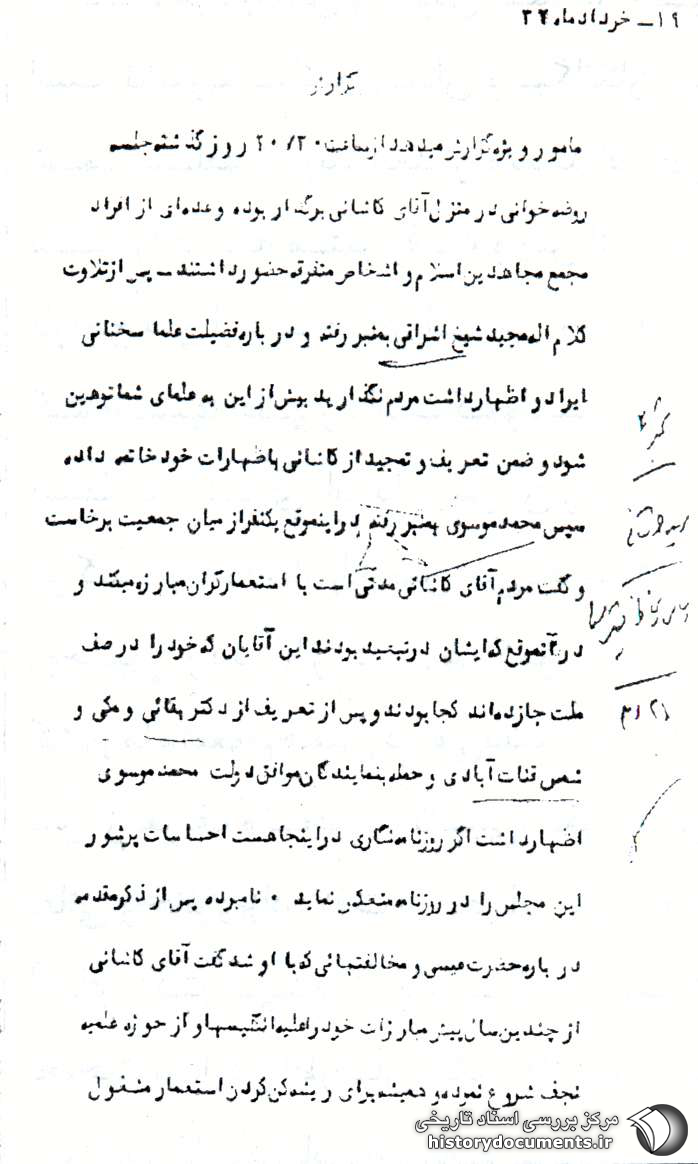 ۱۹ـ خردادماه ۳۲
گزارش
مامور ویژه گزارش میدهد از ساعت ۲۰/۳۰ روز گذشته جلسه
روضه خوانی در منزل آقای کاشانی برگذار بوده و عده‌ای از افراد
مجمع مجاهدین اسلام و اشخاص متفرقه حضور داشتند ـ پس از تلاوت
کلام اله مجید شیخ اشراقی بمنبر رفته و در باره فضیلت علما سخنانی
ایراد و اظهار داشت مردم نگذارید بیش از این به علمای شما توهین
شود و ضمن تعریف و تمجید از کاشانی باظهارات خود خاتمه داده
سپس محمد موسوی بمنبر رفته در اینموقع یکنفر از میان جمعیت برخاست
و گفت مردم آقای کاشانی مدتی است با استعمارگران مبارزه میکند و
در آنموقع که ایشان در تبعید بودند این آقایان که خود را در صف
ملت جازده‌اند کجا بودند و پس از تعریف از دکتر بقائی و مکی و
شمس قنات آبادی و حمله بنمایندگان موافق دولت محمد موسوی
اظهار داشت اگر روزنامه نگاری در اینجا هست احساسات پرشور
این مجلس را در روزنامه منعکس نماید ۰ نامبرده پس از ذکر مقدمه
در باره حضرت عیسی و مخالفتهائی که با او شد گفت آقای کاشانی
از چندین سال پیش مبارزات خود را علیه انگلیسها و از حوزه علمیه
نجف شروع نموده و همیشه برای ریشه کن کردن استعمار مشغول
۳/۲۱
مرکز بررسی اسناد تاریخی
historydocuments.ir